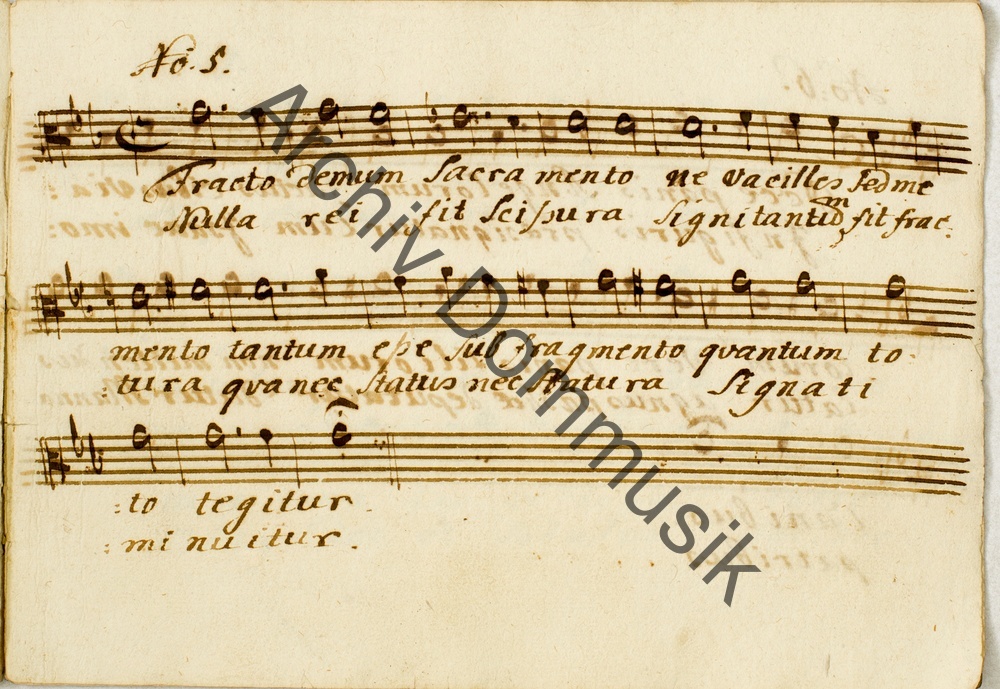 No. 5.
Fracto demum Sacramento ne vacilles Sed me
Nulla rei fit Scißura Signi tantum fit frac:
mento tantum eße sub fragmento quantum to-
:tura qua nec Status nec Statura Signati
:to tegitur.
:minuitur.
Archiv Dommusik